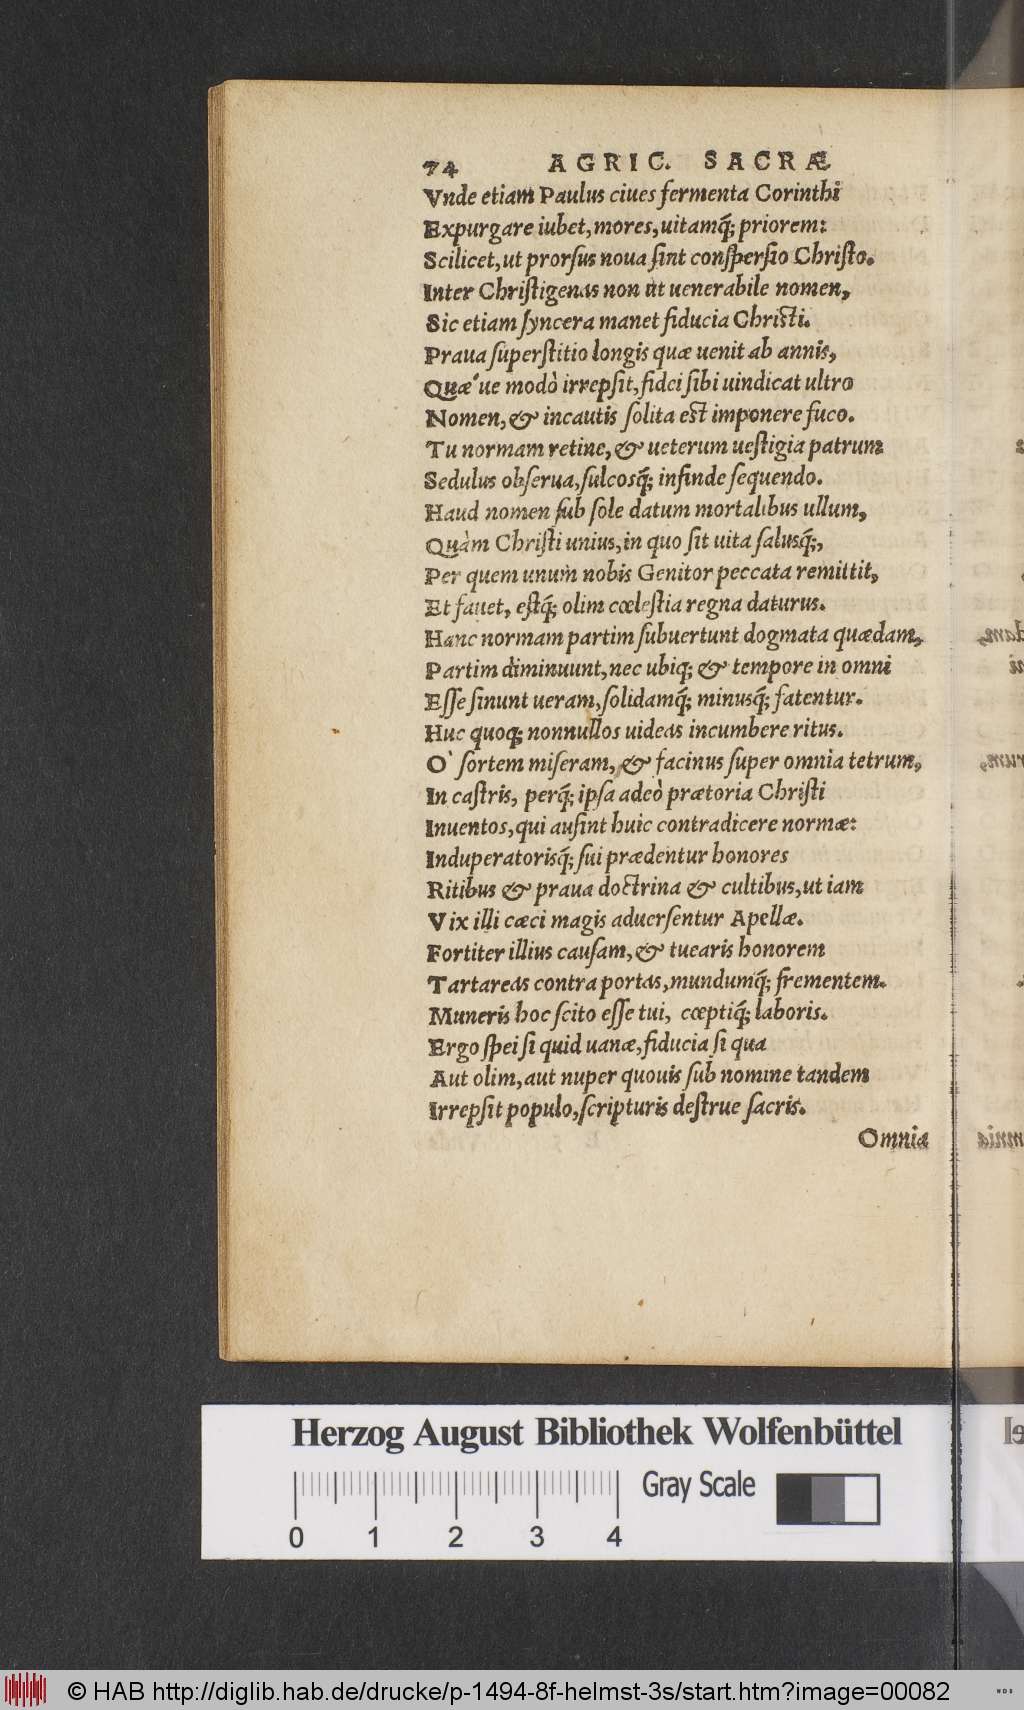 74 AGRIC. SACRÆ
Vnde etiam Paulus ciues fermenta Corinthi
Expurgare iubet, mores, uitamq́; priorem:
Scilicet, ut prorſus noua ſint conſperſio Chriſto.
Inter Chriſtigenas non ut uenerabile nomen,
Sic etiam ſyncera manet fiducia Chriſti.
Praua ſuperſtitio longis quæ uenit ab annis,
Quæ´ue modò irrepſit, fidei ſibi uindicat ultro
Nomen, & incautis ſolita eſt imponere fuco.
Tu normam retine, & ueterum ueſtigia patrum
Sedulus obſerua, ſulcosq́; infinde ſequendo.
Haud nomen ſub ſole datum mortalibus ullum,
Quàm Chriſti unius, in quo ſit uita ſalusq́;,
Per quem unum nobis Genitor peccata remittit,
Et fauet, eſtq́; olim cœleſtia regna daturus.
Hanc normam partim ſubuertunt dogmata quædam,
Partim diminuunt, nec ubiq; & tempore in omni
Eſſe ſinunt ueram, ſolidamq́; minusq́; fatentur.
Huc quoq; nonnullos uideas incumbere ritus.
O` ſortem miſeram, & facinus ſuper omnia tetrum,
In caſtris, perq́; ipſa adeò prætoria Chriſti
Inuentos, qui auſint huic contradicere normæ:
Induperatorisq́; ſui prædentur honores
Ritibus & praua doctrina & cultibus, ut iam
Vix illi cæci magis aduerſentur Apellæ.
Fortiter illius cauſam, & tuearis honorem
Tartareas contra portas, mundumq́; frementem.
Muneris hoc ſcito eſſe tui, cœptiq́; laboris.
Ergo ſpei ſi quid uanæ, fiducia ſi qua
Aut olim, aut nuper quouis ſub nomine tandem
Irrepſit populo, ſcripturis deſtrue ſacris.
Omnia
Herzog August Bibliothek Wolfenbüttel
Gray Scale
0 1 2 3 4
© HAB http://diglib.hab.de/drucke/p-1494-8f-helmst-3s/start.htm?image=00082